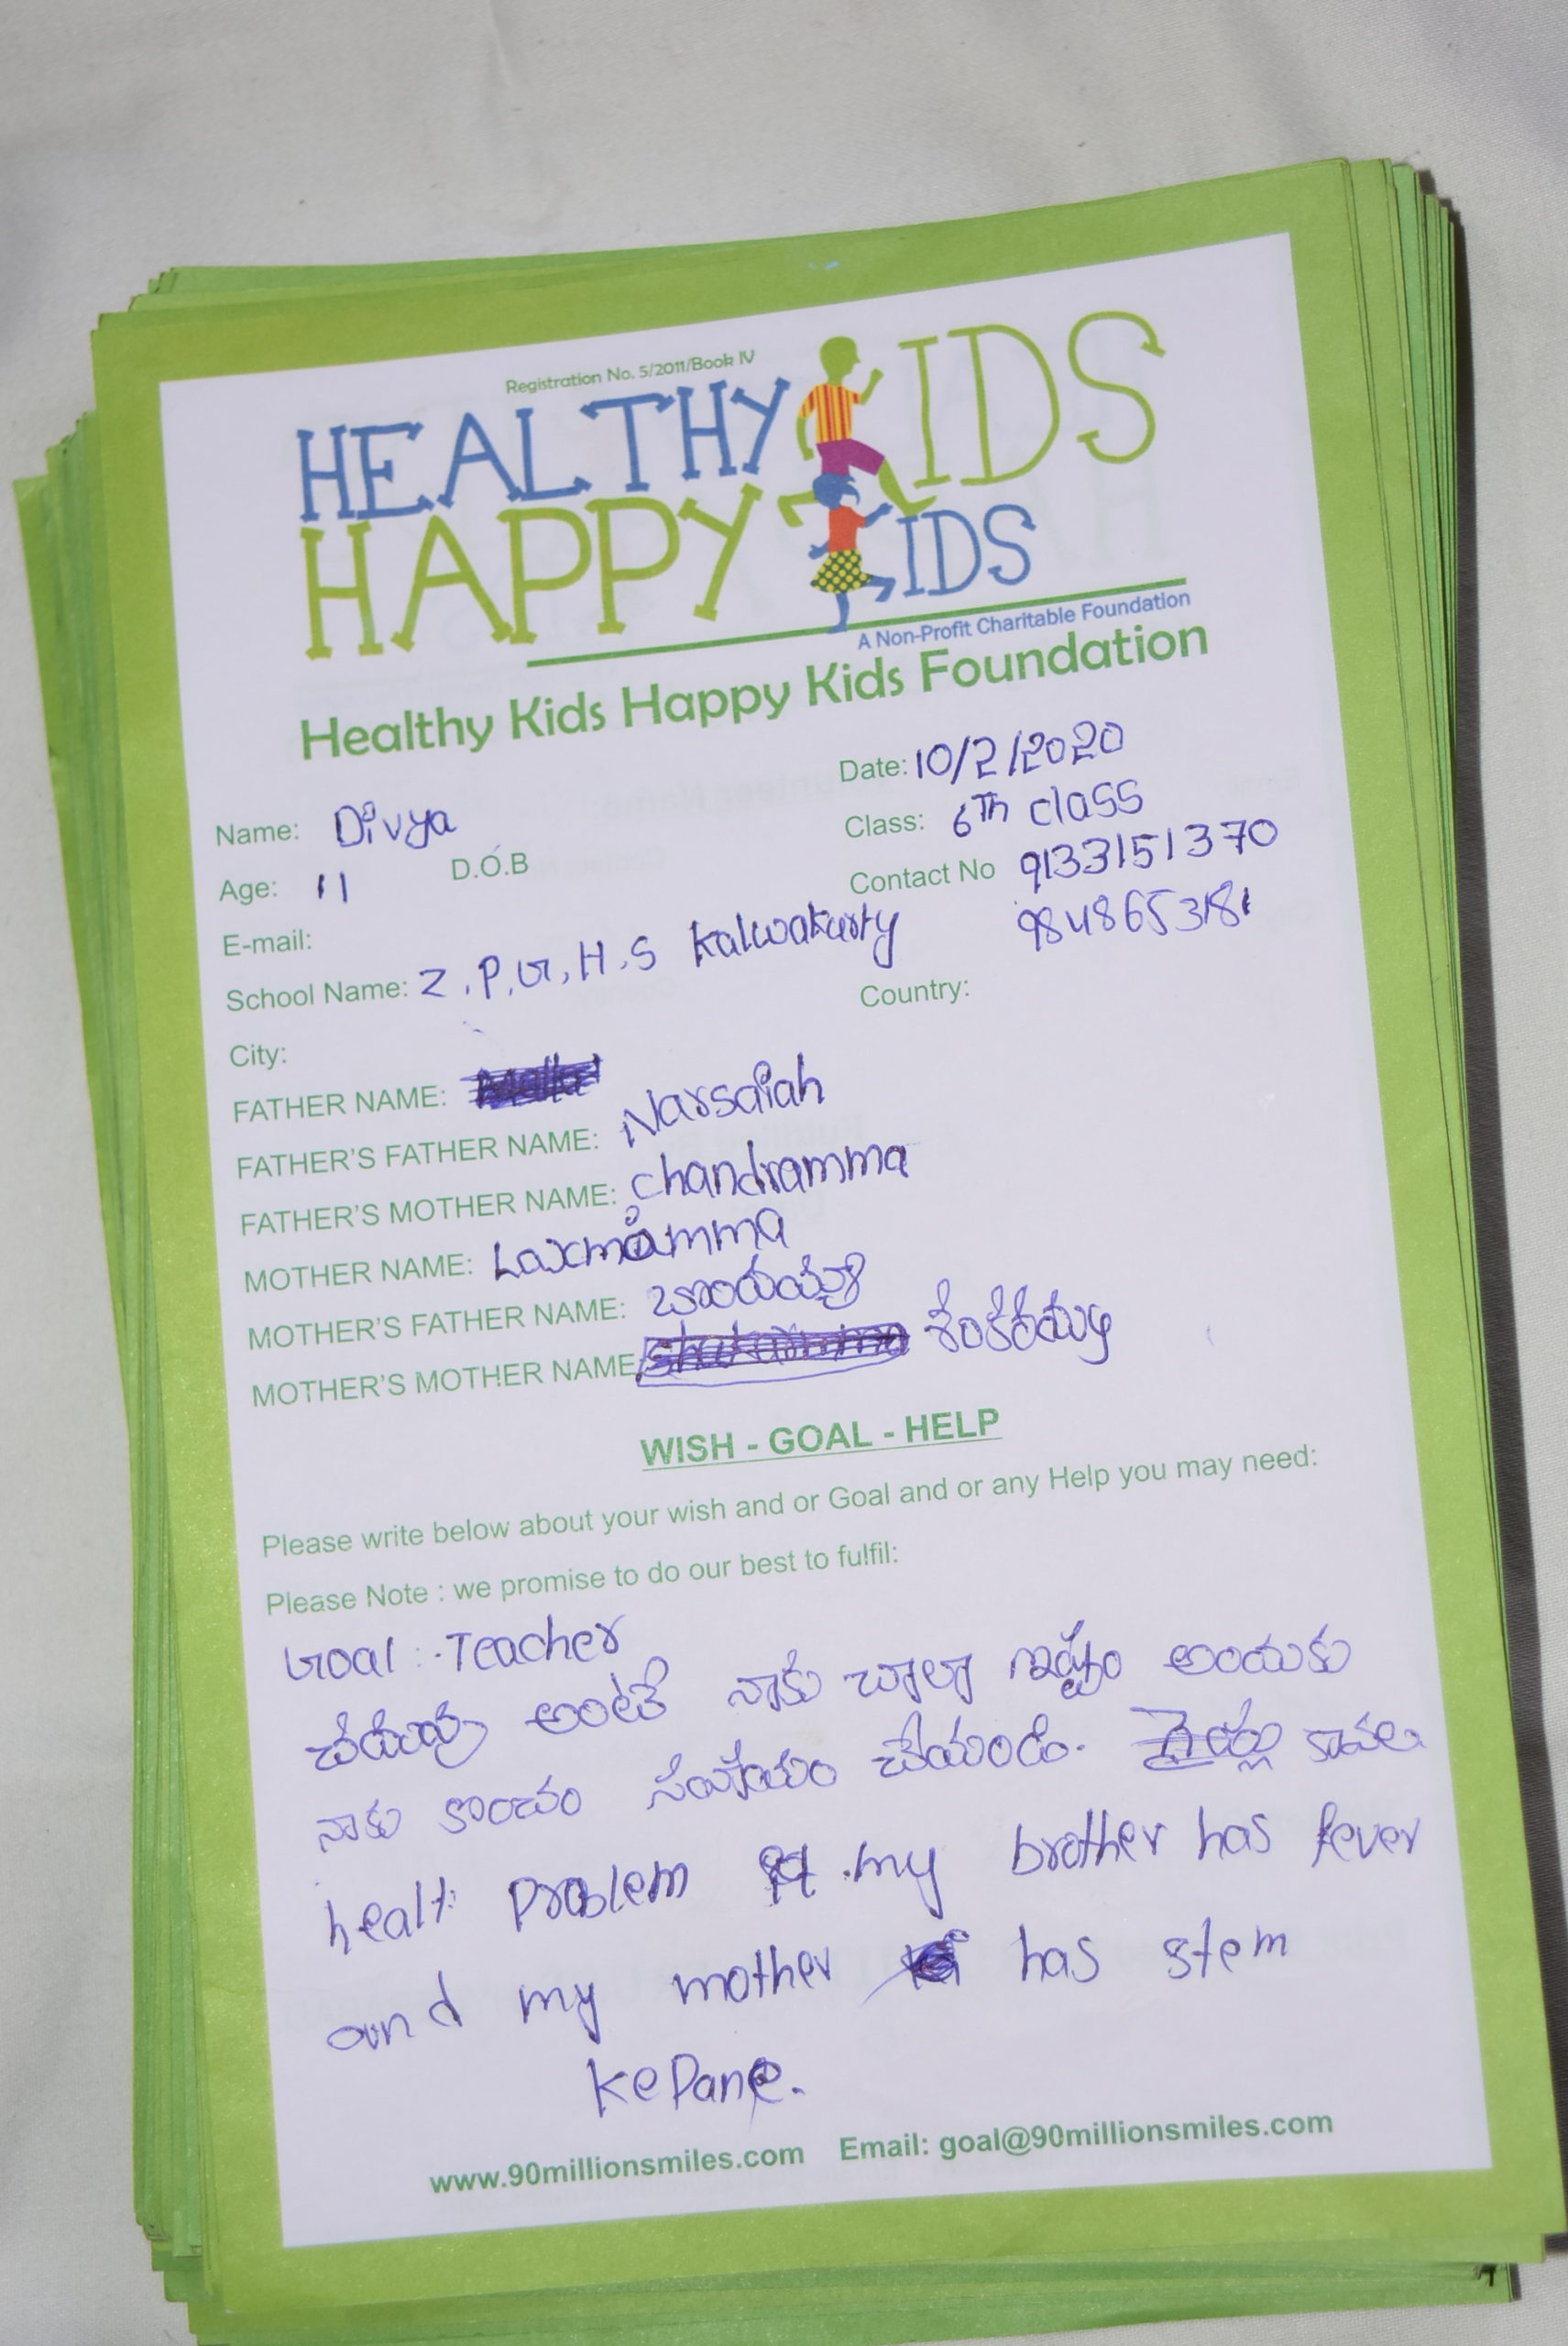 Registration No. 5/2011/Book IV
HEALTHY KIDS
HAPPY KIDS
A Non-Profit Charitable Foundation
Healthy Kids Happy Kids Foundation
Date: 10/2/2020
Name: Divya
Class: 6Th class
Age: 11 D.O.B
Contact No 9133151370
9848653181
E-mail:
School Name: Z.P.G.H.S Kalwakurty
City: Country:
FATHER NAME:
FATHER'S FATHER NAME: Narsaiah
FATHER'S MOTHER NAME: Chandramma
MOTHER NAME: Laxmamma
MOTHER'S FATHER NAME:
MOTHER'S MOTHER NAME
WISH - GOAL - HELP
Please write below about your wish and or Goal and or any Help you may need:
Please Note : we promise to do our best to fulfil:
Goal :- Teacher
అంటే నాకు చాలా ఇష్టం అందుకు
నాకు కొంచం సహాయం చేయండి.
healt problem my brother has fever
and my mother has stem
ke Pane.
www.90millionsmiles.com Email: goal@90millionsmiles.com